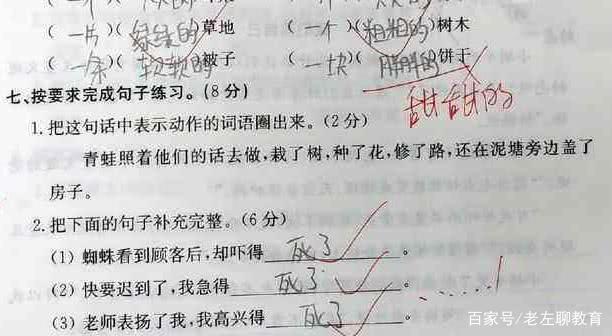 (一片)(绿绿的)草地 (一个)(粗粗的)树木
(一条)(软软的)被子 (一块)(胖胖的)饼干
甜甜的
七、按要求完成句子练习。(8分)
1.把这句话中表示动作的词语圈出来。(2分)
青蛙照着他们的话去做,栽了树,种了花,修了路,还在泥塘旁边盖了
房子。
2.把下面的句子补充完整。(6分)
(1) 蜘蛛看到顾客后,却吓得 死了 。
(2) 快要迟到了,我急得 死了 。
(3) 老师表扬了我,我高兴得 死了 。
百家号/老左聊教育